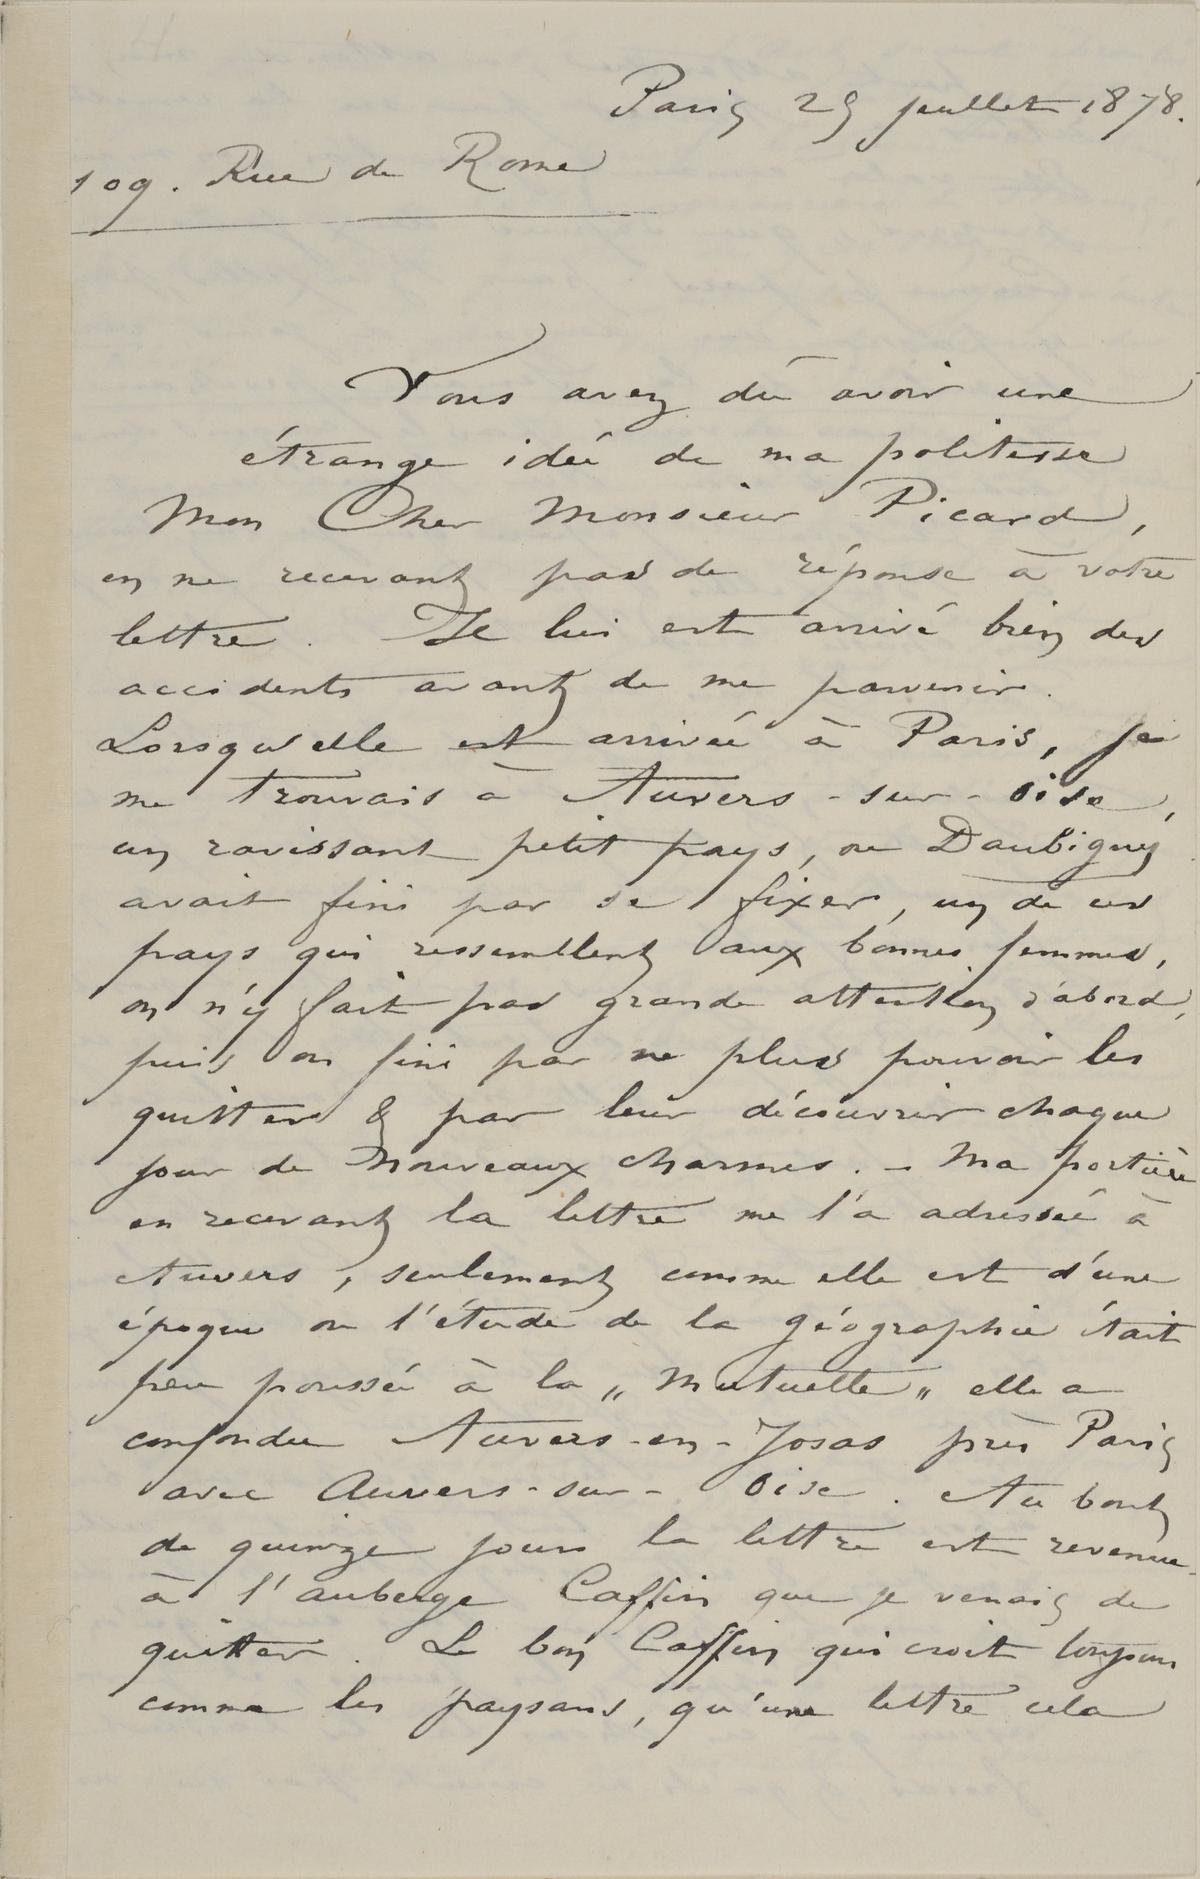 Paris 29 juillet 1878.
109. Rue de Rome
Vous avez dû avoir une
étrange idée de ma politesse
Mon Cher Monsieur Picard,
en ne recevant pas de réponse à votre
lettre. Il lui est arrivé bien des
accidents avant de me parvenir.
Lorsqu'elle est arrivée à Paris, je
me trouvais à Auvers-sur-Oise,
un ravissant petit pays, ou Daubigny
avait fini par se fixer, un de ces
pays qui ressemblent aux bonnes femmes,
on n'y fait pas grande attention d'abord,
puis on fini par ne plus pouvoir les
quitter & par leur découvrir chaque
jour de nouveaux charmes. - Ma portière
en recevant la lettre me l'a adressée à
Auvers, seulement comme elle est d'une
époque ou l'étude de la géographie était
peu poussée à la „Mutuelle„ elle a
confondu Auvers-en-Josas près Paris
avec Auvers-sur-Oise. Au bout
de quinze jours la lettre est revenue
à l'auberge Caffin que je venais de
quitter. Le bon Caffin qui croit toujours
comme les paysans, qu'une lettre cela